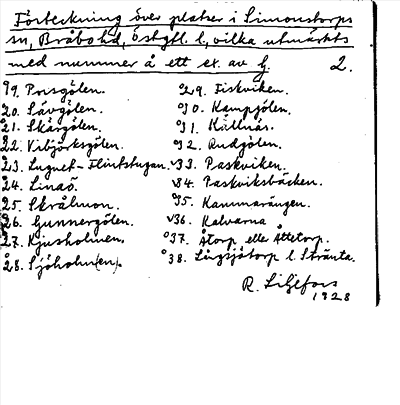 Förteckning över platser i Simonstorps
sn, Bråbo hd, Östgtl. l., vilka utmärkts
med nummer å ett ex. av G.
2.
19. Porsgölen.
20. Sävgölen.
21. Skärgölen.
22. Vibjörksgölen.
23. Lugnet - Flintstugan.
24. Linaö.
25. Skrålmon.
26. Gunnergölen.
27. Kjusholmen.
28. Sjöholm(en).
29. Fiskviken.
30. Kampgölen.
31. Källnäs.
32. Rudgölen.
33. Paskviken.
34. Paskviksbäcken.
35. Kammarängen.
36. Kalvarna
37. Åtorp eller Åttetorp.
38. Långsjötorp l. Stränta.
R. Liljefors
1928